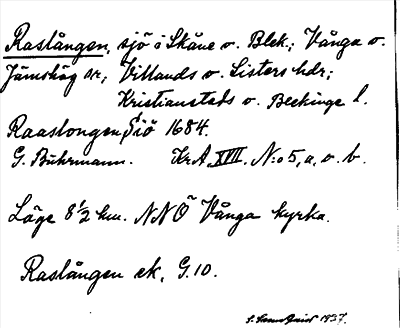 Raslången, sjö i Skåne o. Blek.; Vånga o.
Jämshög snr; Villands o. Listers hdr;
Kristianstads o. Blekinge l.
Raaslongen Siö 1684.
G. Buhrmann. KrA XVII, N:o 5, a, o. b.
Läge 8 1/2 km. NNÖ Vånga kyrka.
Raslången ek, G.10.
1937.